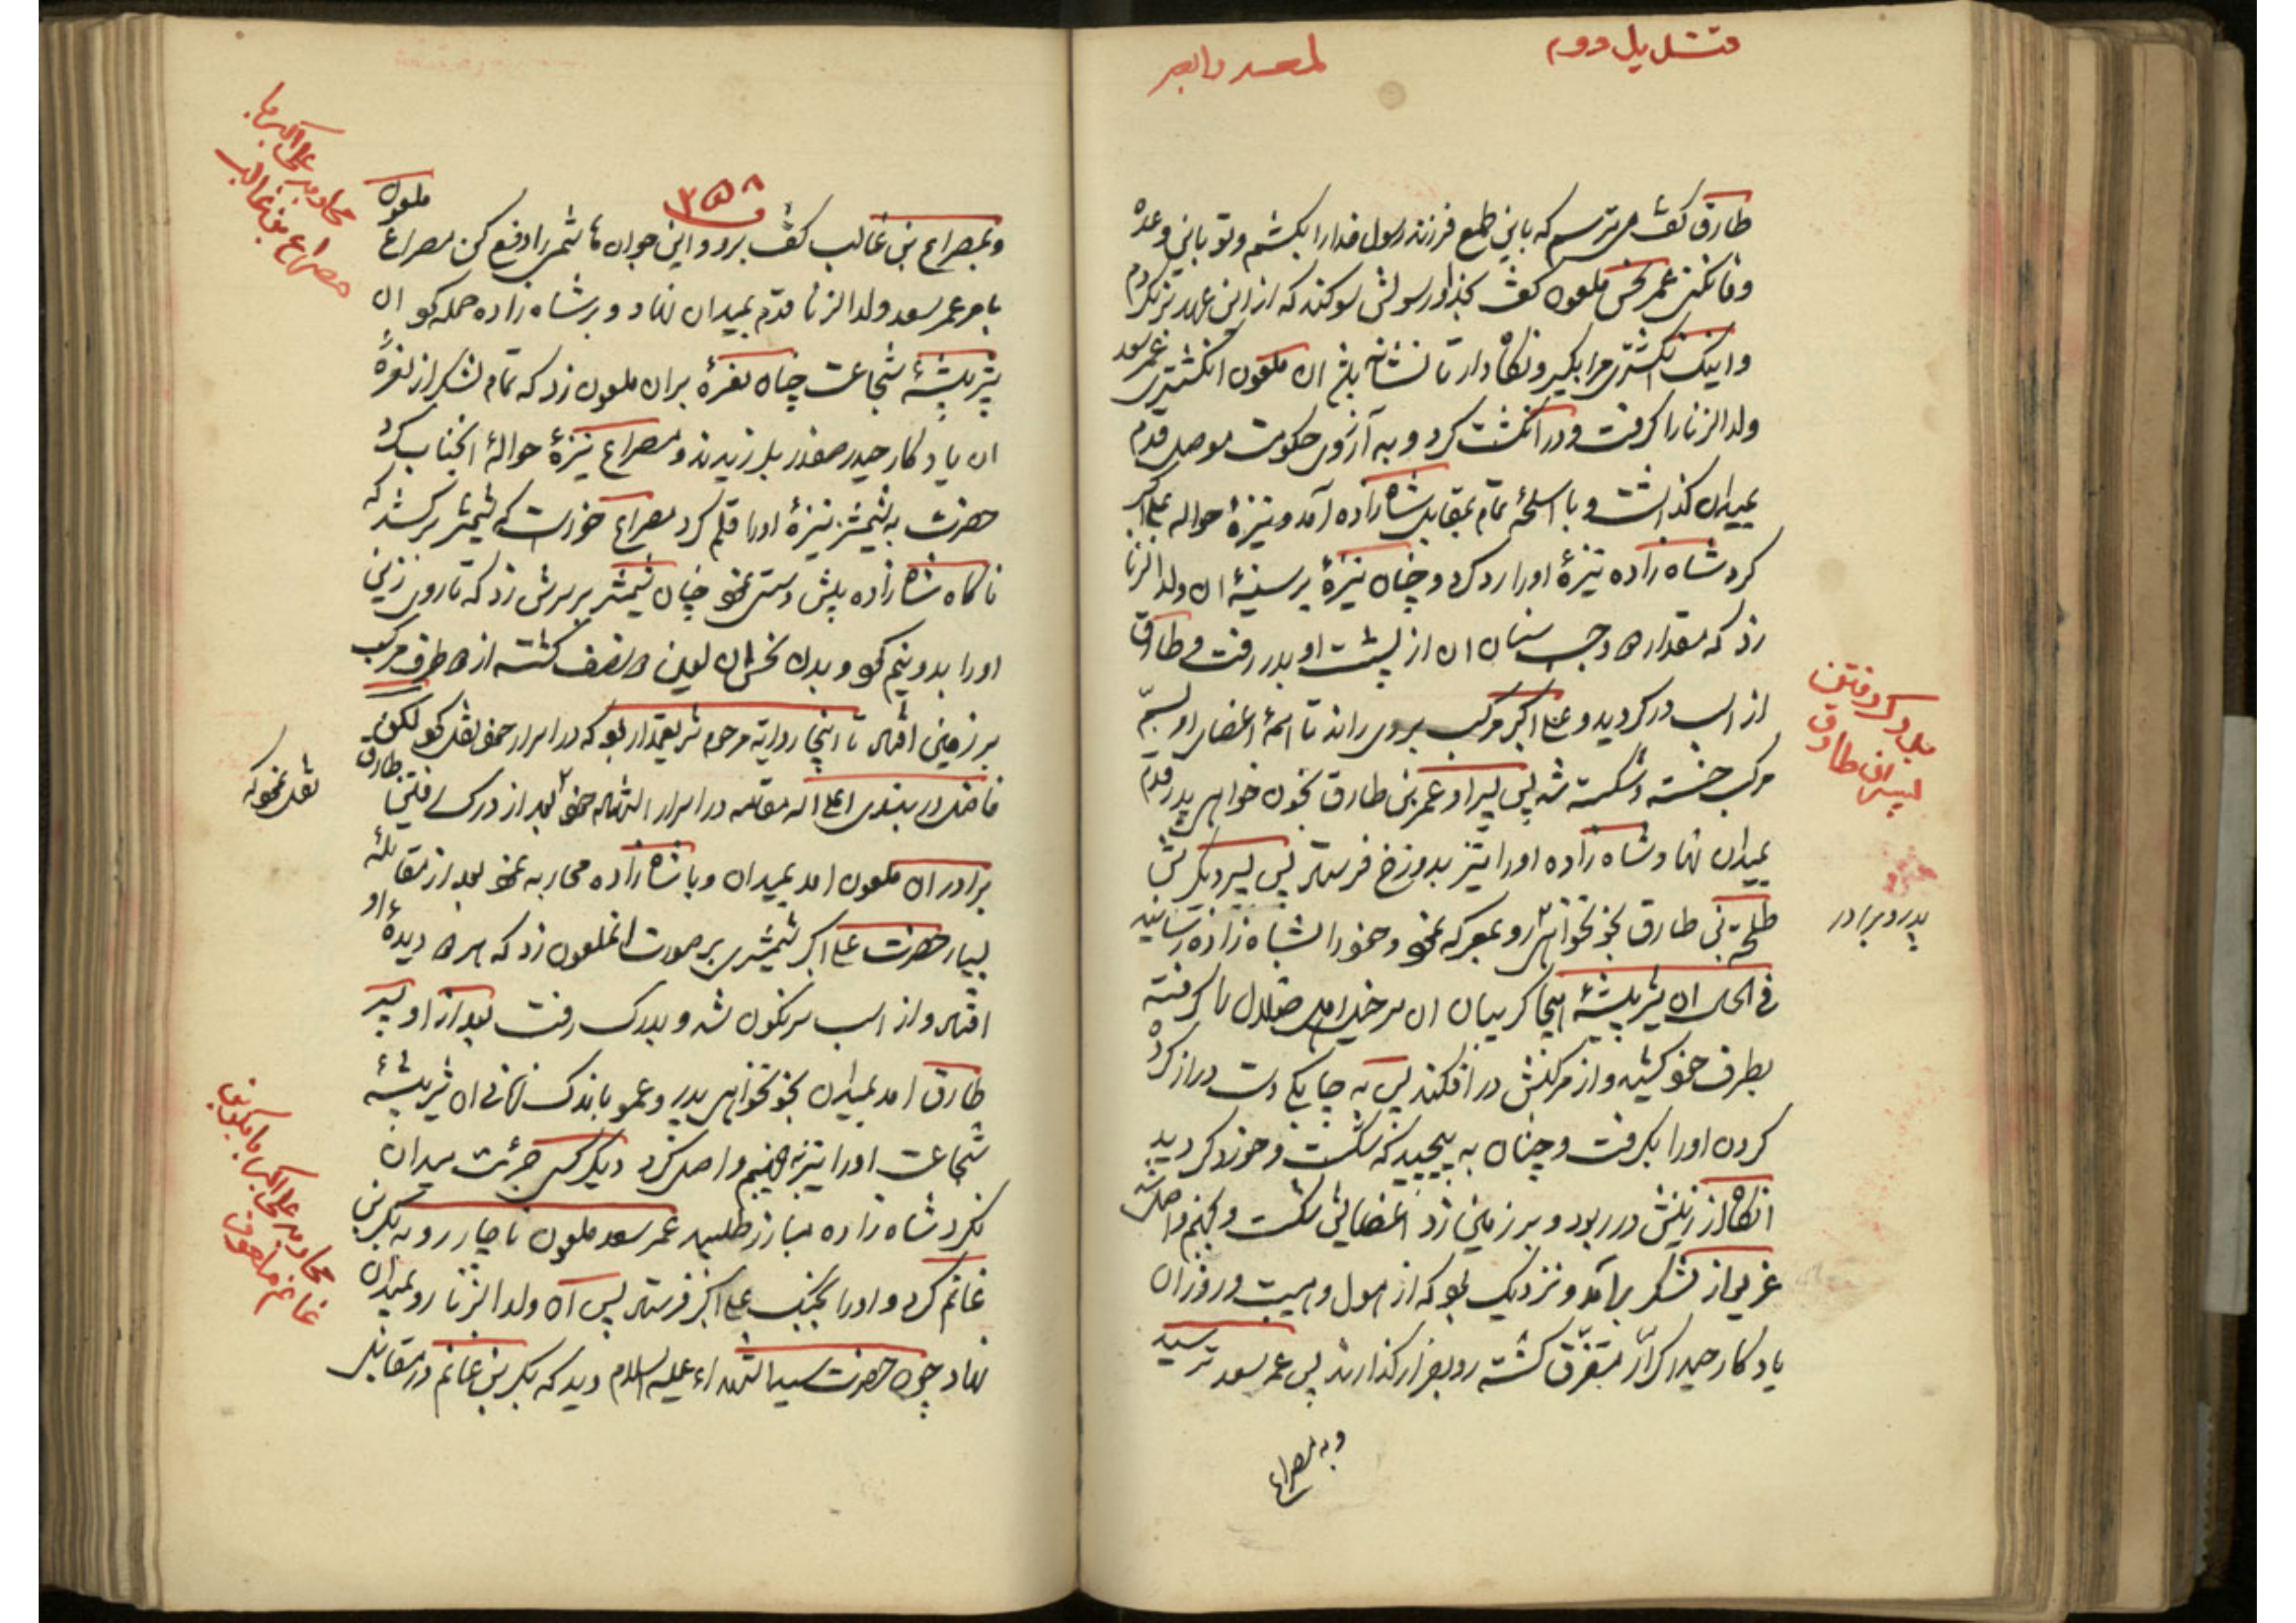 طارق کفت می ترسم که باین طمع فرزند رسول خدا را بکشم و تو باین وعده
وفا نکنی عمر نحس ملعون کفت بخدا و رسولش سوکند که از این عهد نکردم
و اینک انکشتری مرا بکیر و نکاه دار تا نشانه باشد ان ملعون انکشتری عمر سعد
ولدالزنا را کرفت و در انکشت کرد و به آرزوی حکومت موصل قدم
بمیدان کذاشت و با اسلحه تمام بمقابل شاه زاده آمد و نیزهٔ حواله علی اکبر
کرد شاه زاده نیزهٔ او را رد کرد و چنان نیزهٔ بر سینهٔ ان ولدالزنا
زد که مقدار ۲ وجب سنان ان از پشت او بدر رفت و طارق
از اسب در کردید و علی اکبر مرکب بروی راند تا همهٔ اعضای او بسم
مرکب خسته و شکسته شد پس پسر او عمر بن طارق بخون خواهی پدر قدم
بمیدان نهاد و شاه زاده او را نیز بدوزخ فرستاد پس پسر دیکرش
طلحة بن طارق بخونخواهی رو بمعرکه نمود و خود را بشاه زاده رسانید
فی الحال ان شیر بیشهٔ هیجا کریبان ان سرخیل اهل ضلال را کرفته
بطرف خود کشید و از مرکبش در افکند پس به چابکی دست دراز کرده
کردن او را بکرفت و چنان به پیچید که شکست و خورد کردید
انکاه از زینش در ربود و بر زمین زد اعضایش شکست و بجهنم واصل شد
غریو از لشکر برآمد و نزدیک بود که از هول و هیبت و زور ان
یادکار حیدر کرار متفرق کشته رو بفرار کذارند پس عمر سعد ترسید
و به مصراع
پدر و برادر
۳۵۸
و بمصراع بن غالب کفت برو و این جوان هاشمی را دفع کن مصراع ملعون
بامر عمر سعد ولدالزنا قدم بمیدان نهاد و بر شاه زاده حمله کرد ان
شیر بیشهٔ شجاعت چنان نعرهٔ بران ملعون زد که تمام لشکر از نعرهٔ
ان یادکار حیدر صفدر بلرزیدند و مصراع نیزهٔ حوالهٔ انجناب کرد
حضرت به شمشیر نیزهٔ او را قلم کرد مصراع خواست که شمشیر برکشد که
ناکاه شاه زاده پیش دستی نمود چنان شمشیر بر سرش زد که تا روی زین
او را بدو نیم کرد و بدن نحس ان لعین ۲ نصف کشته از ۲ طرف مرکب
بر زمین افتاد تا اینجا روایة مرحوم شریعتمدار بود که در اسرار خود نقل کرد لکن
فاضل دربندی اعلی الله مقامه در اسرار الشهاده خود بعد از درک رفتن طارق
نقل نموده که
برادر ان ملعون امد بمیدان و با شاه زاده محاربه نمود بعد از مقاتلهٔ
بسیار حضرت علی اکبر شمشیری بر صورت انملعون زد که هر ۲ دیدهٔ او
افتاد و از اسب سرنکون شد و بدرک رفت بعد از او پسر
طارق امد بمیدان بخونخواهی پدر و عمو باندک زمانی ان شیر بیشهٔ
شجاعت او را نیز بجهنم واصل کرد دیکر کسی جرئت میدان
نکرد شاه زاده مبارز طلبید عمر سعد ملعون ناچار رو به بکر بن
غانم کرد و او را بجنک علی اکبر فرستاد پس آن ولدالزنا رو بمیدان
نهاد چون حضرت سیدالشهداء علیه السلام دید که بکر بن غانم در مقابل